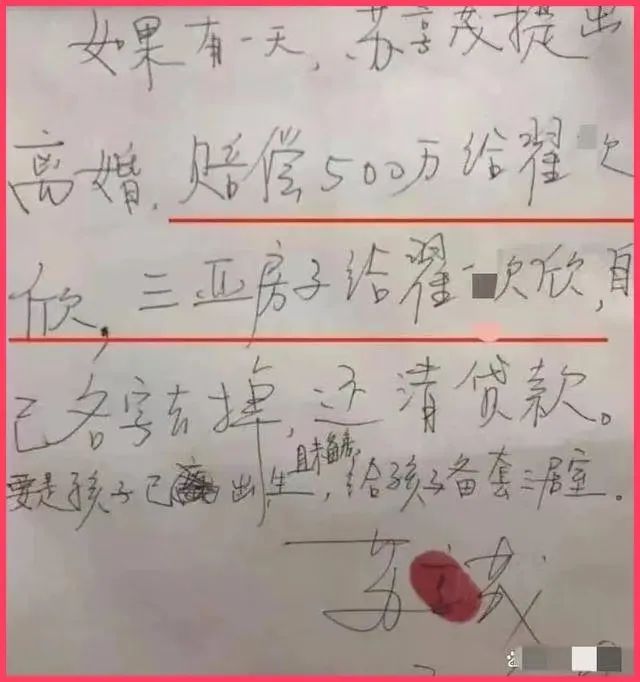 如果有一天,苏享茂提出
离婚,赔偿500万给翟欠
欣,三亚房子给翟欠欣,自
己名字去掉,还清贷款。
要是孩子已出生,给孩子备套三居室。
苏茂